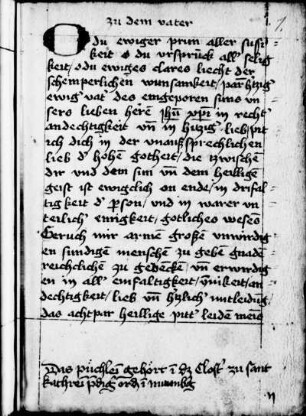 zu dem vater
O du ewiger prun aller susi
keit o du ursprück all' selig
keit / o du ewiges clares liecht der
schemperlichen wunsamkeit / parmhtzig
ewig vat' des eingeporen suns un
sers lieben heren ihu xpi in recht
andechtigkeit vn in hitzig' lieb pit
ich dich in der unaußsprechlichen
lieb d' hohen gotheit / die tzwischen
dir und dem sun vn dem heiligen
geist ist ewigclich on ende / in drifal
tigkeit d' person / und in warer un
teilich' einigkeit / gotliches wesens
Geruch mir armen großen unwirdig
en sundigen menschen zu geben gnade
reichclichen zu gedencken vn erwirdig
en in all' einfaltigkeit / an
dechtigkeit / lieb vn htzlich mitleidung
das achtpar heillige pitt' leiden mein
Das püchlein gehört in dz closter zu sant
kathrei pdig' ordens in nurmbg